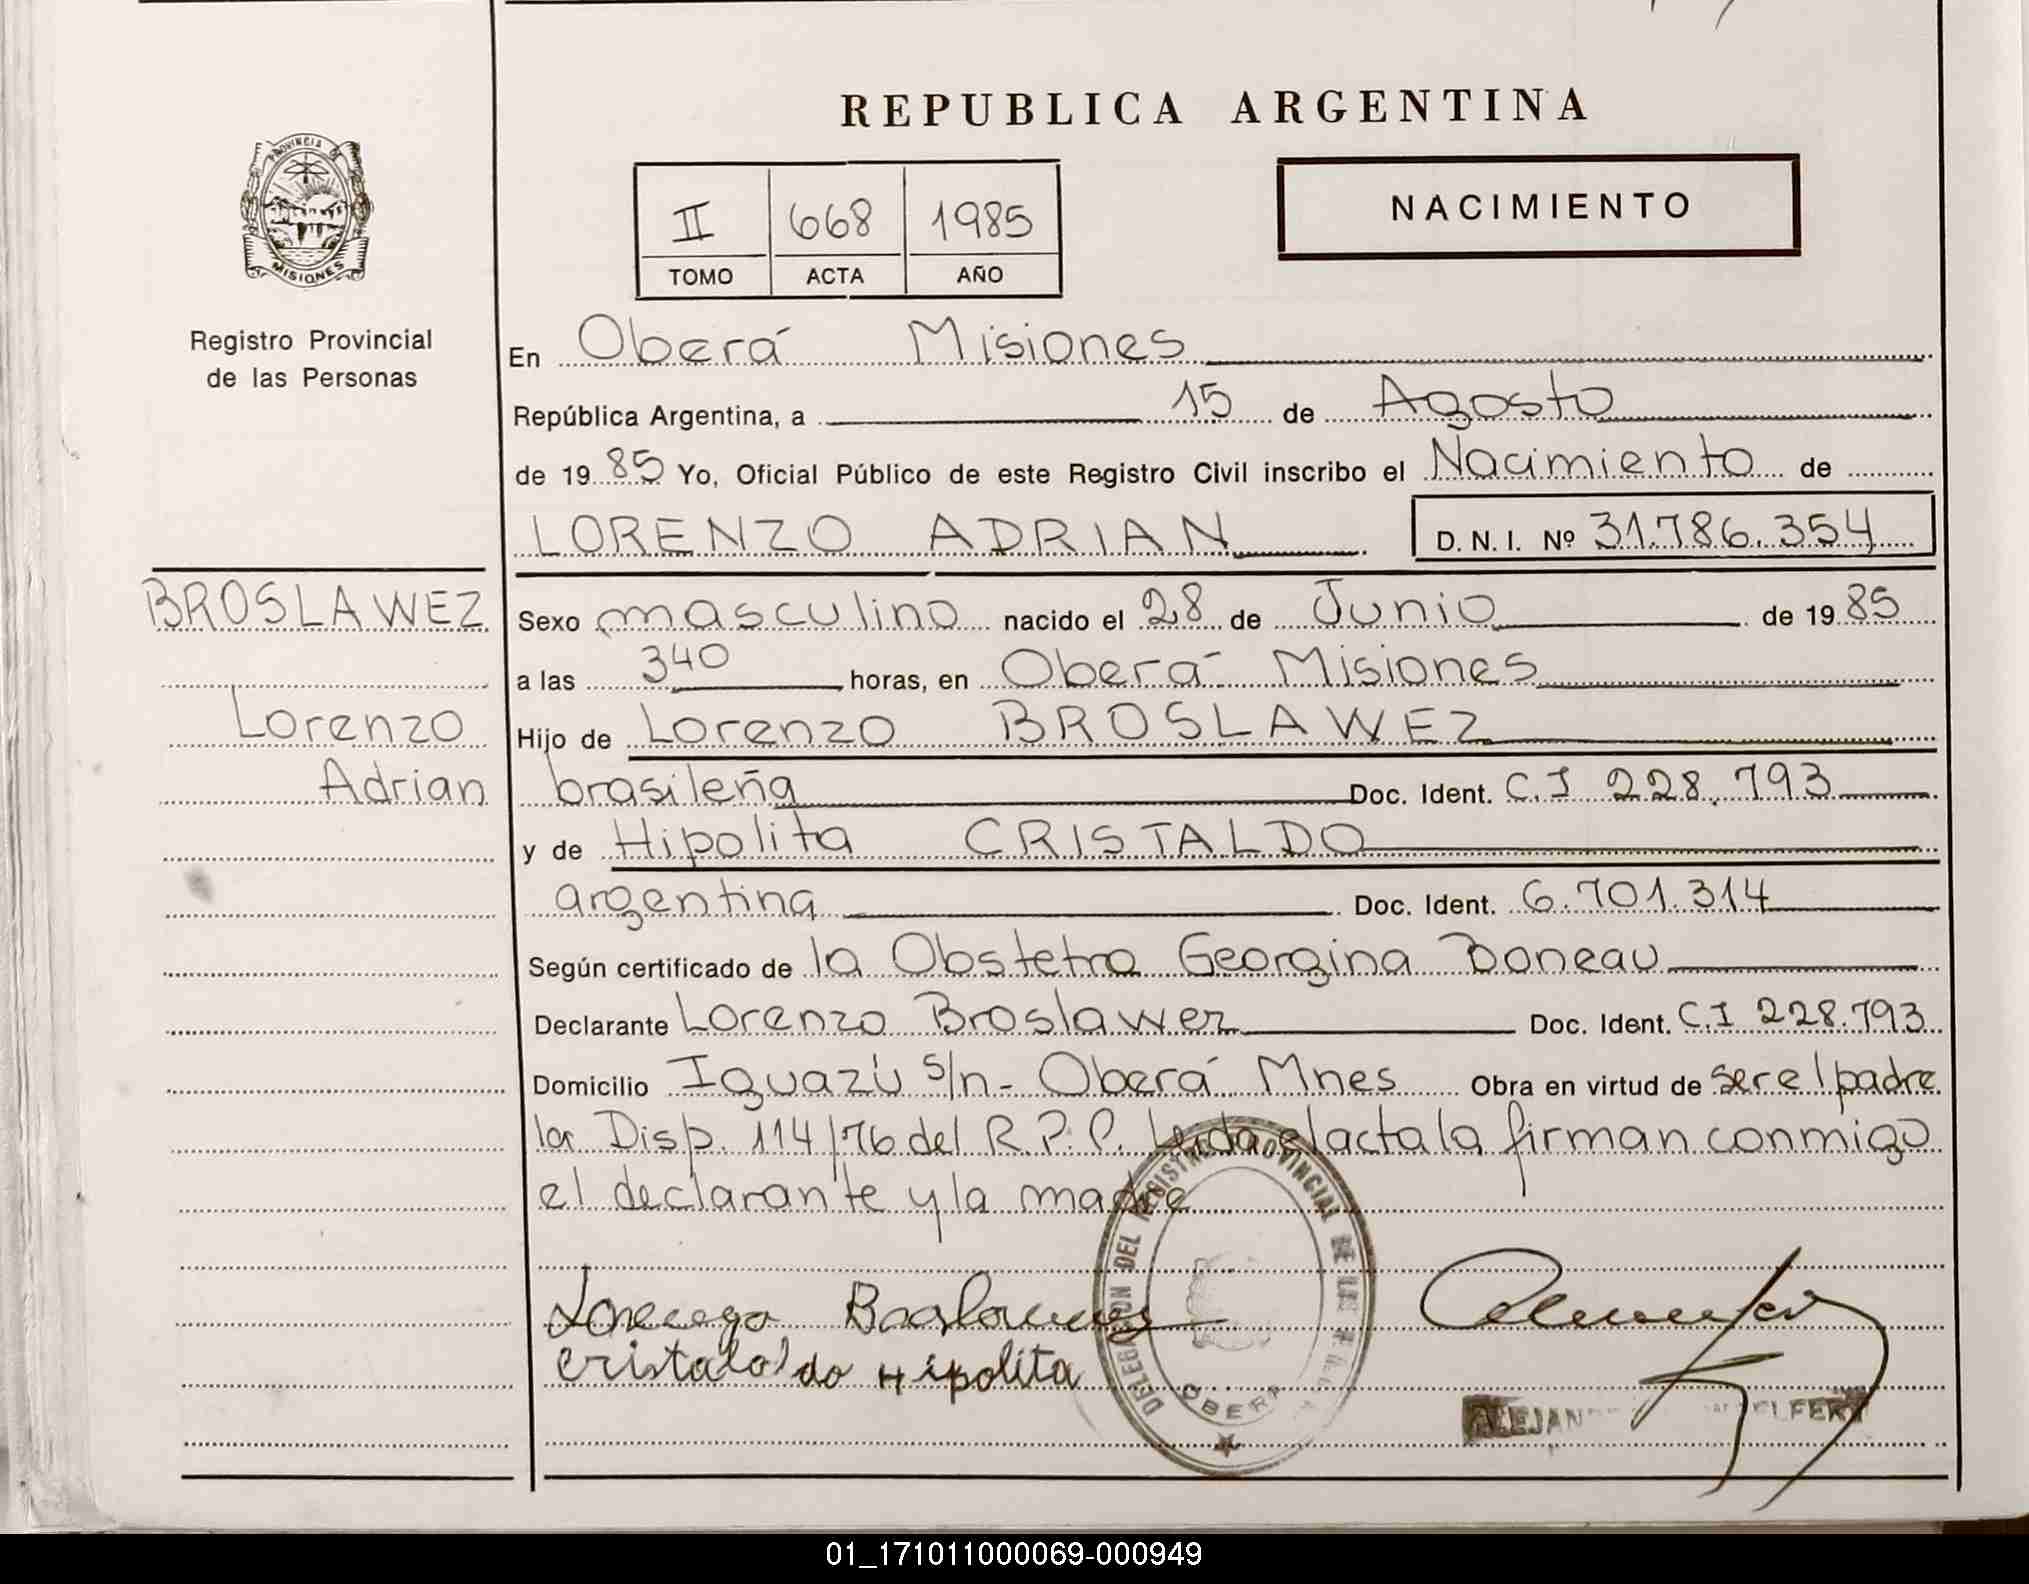 REPUBLICA ARGENTINA
PROVINCIA DE
MISIONES
Registro Provincial
de las Personas
II 668 1985
TOMO ACTA AÑO
NACIMIENTO
En Oberá Misiones
República Argentina, a 15 de Agosto
de 1985 Yo, Oficial Público de este Registro Civil inscribo el Nacimiento de
LORENZO ADRIAN D. N. I. Nº 31.786.354
BROSLAWEZ
Lorenzo
Adrian
Sexo masculino nacido el 28 de Junio de 1985
a las 340 horas, en Oberá Misiones
Hijo de Lorenzo BROSLAWEZ
brasileña Doc. Ident. C.I 228.793
y de Hipolita CRISTALDO
argentina Doc. Ident. 6.701.314
Según certificado de la Obstetra Georgina Boneau
Declarante Lorenzo Broslawez Doc. Ident. C.I 228.793
Domicilio Iguazú s/n- Oberá Mnes Obra en virtud de ser el padre
la Disp. 114/76 del R.P.P. Leida el acta la firman conmigo
el declarante y la madre
DELEGACION DEL REGISTRO PROVINCIAL DE LAS
OBERA
Cristaldo Hipolita
01_171011000069-000949